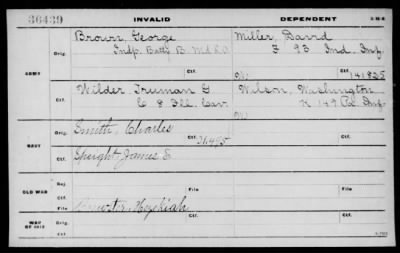 36439 INVALID DEPENDENT
Brown, George Miller, David
Orig. Indp. Batty B. Md L.A. F 93 Ind. Inf.
ARMY W 141825
Ctf.
Wilder, Truman G Wilson, Washington
Ctf. C 8 Ill. Cav. K 149 Pa. Inf.
W
Smith, Charles
Orig. Ctf. 31495 Orig.
NAVY
Speight, James E.
Ctf. Ctf.
Rej.
Ctf. File
OLD WAR
File
Brewster, Hezekiah
WAR OF 1812 Orig. Ctf. Ctf.